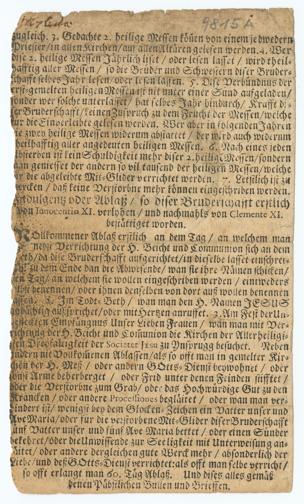 9845 A
zugleich. 3. Gedachte 2. heilige Messen können von einem jedwedern
Priester / in allen Kirchen / auf allen Altären gelesen werden. 4. Wer
dise 2. heilige Messen Jährlich liset / oder lesen lasset / wird theil-
hafftig aller Messen / so die Brüder und Schwestern diser Bruder-
schafft selbes Jahr lesen / oder lesen lassen. 5. Dise Verbündnus der
erstgemelten heiligen Messen ist nit unter einer Sünd aufgeladen /
sonder wer solche unterlasset / hat selbes Jahr hindurch / Krafft di-
ser Bruderschafft / keinen Zuspruch zu dem Frucht der Messen / welche
für die Einverleibte gelesen werden. Wer aber im folgenden Jahr
die zwey heilige Messen widerum abstattet / der wird auch widerum
theilhafftig aller angedeuten heiligen Messen. 6. Nach eines jeden
Absterben ist kein Schuldigkeit mehr diser 2. heilige Messen / sondern
man geniesset der anderen so vil tausend der heiligen Messen / welche
für die abgeleibte Mit-Glider verrichtet werden. 7. Letstlich ist zu
mercken / daß keine Verstorbne mehr können eingeschriben werden.
Indulgentz oder Ablaß / so diser Bruderschafft erstlich
von Innocentio XI. verlyhen / und nachmahls von Clemente XI.
bestättiget worden.
VOllkommener Ablaß erstlich an dem Tag / an welchem man
nebst Verrichtung der H. Beicht und Communion sich an dem
Orth / da dise Bruderschafft aufgerichtet / in dieselbe lasset einschrei-
ben / zu dem Ende dan die Abwesende / wan sie ihre Nämen schicken /
den Tag / an welchem sie wollen eingeschriben werden / eintweders
selbst benennen / oder ihnen denselben von dort aus wollen benennen
lassen. 2. Jn Tods-Beth / wan man den H. Namen JESUS
mündtlich außsprichet / oder mit Hertzen anruffet. 3. Am Fest der Un-
befleckten Empfängnus Unser Lieben Frauen / wan man mit Ver-
richtung der H. Beicht und Communion die Kirchen der Allerheilig-
sten Dreyfaltigkeit der Societet Jesu zu Ynsprugg besuchet. Neben
disen nit Vollkommen Ablassen / als so offt man in gemelter Kir-
chen der H. Meß / oder andern GOtts-Dienst beywohnet / oder
eins Arme beherberget / oder Frid unter den Feinden stifftet /
oder die Verstorbne zum Grab / oder das Hochwürdige Gut zu den
Krancken / oder andere Processiones begläitet / oder wan man ver-
hindert ist / wenigst bey dem Glocken-Zeichen ein Vatter unser und
Ave Maria / oder für die verstorbene Mit-Glider diser Bruderschafft
fünf Vatter unser und fünf Ave Maria bettet / oder einen Sünder
bekehret / oder die Unwissende zur Seeligkeit mit Unterweisung an-
leitet / oder andere dergleichen gute Werck mehr / absonderlich der
Liebe / und deß GOtts-Diensts verrichtet: als offt man selbe verricht /
so offt erlangt man 60. Täg Ablaß. Und dises alles gemäß
denen Päbstlichen Bullen und Brieffen.